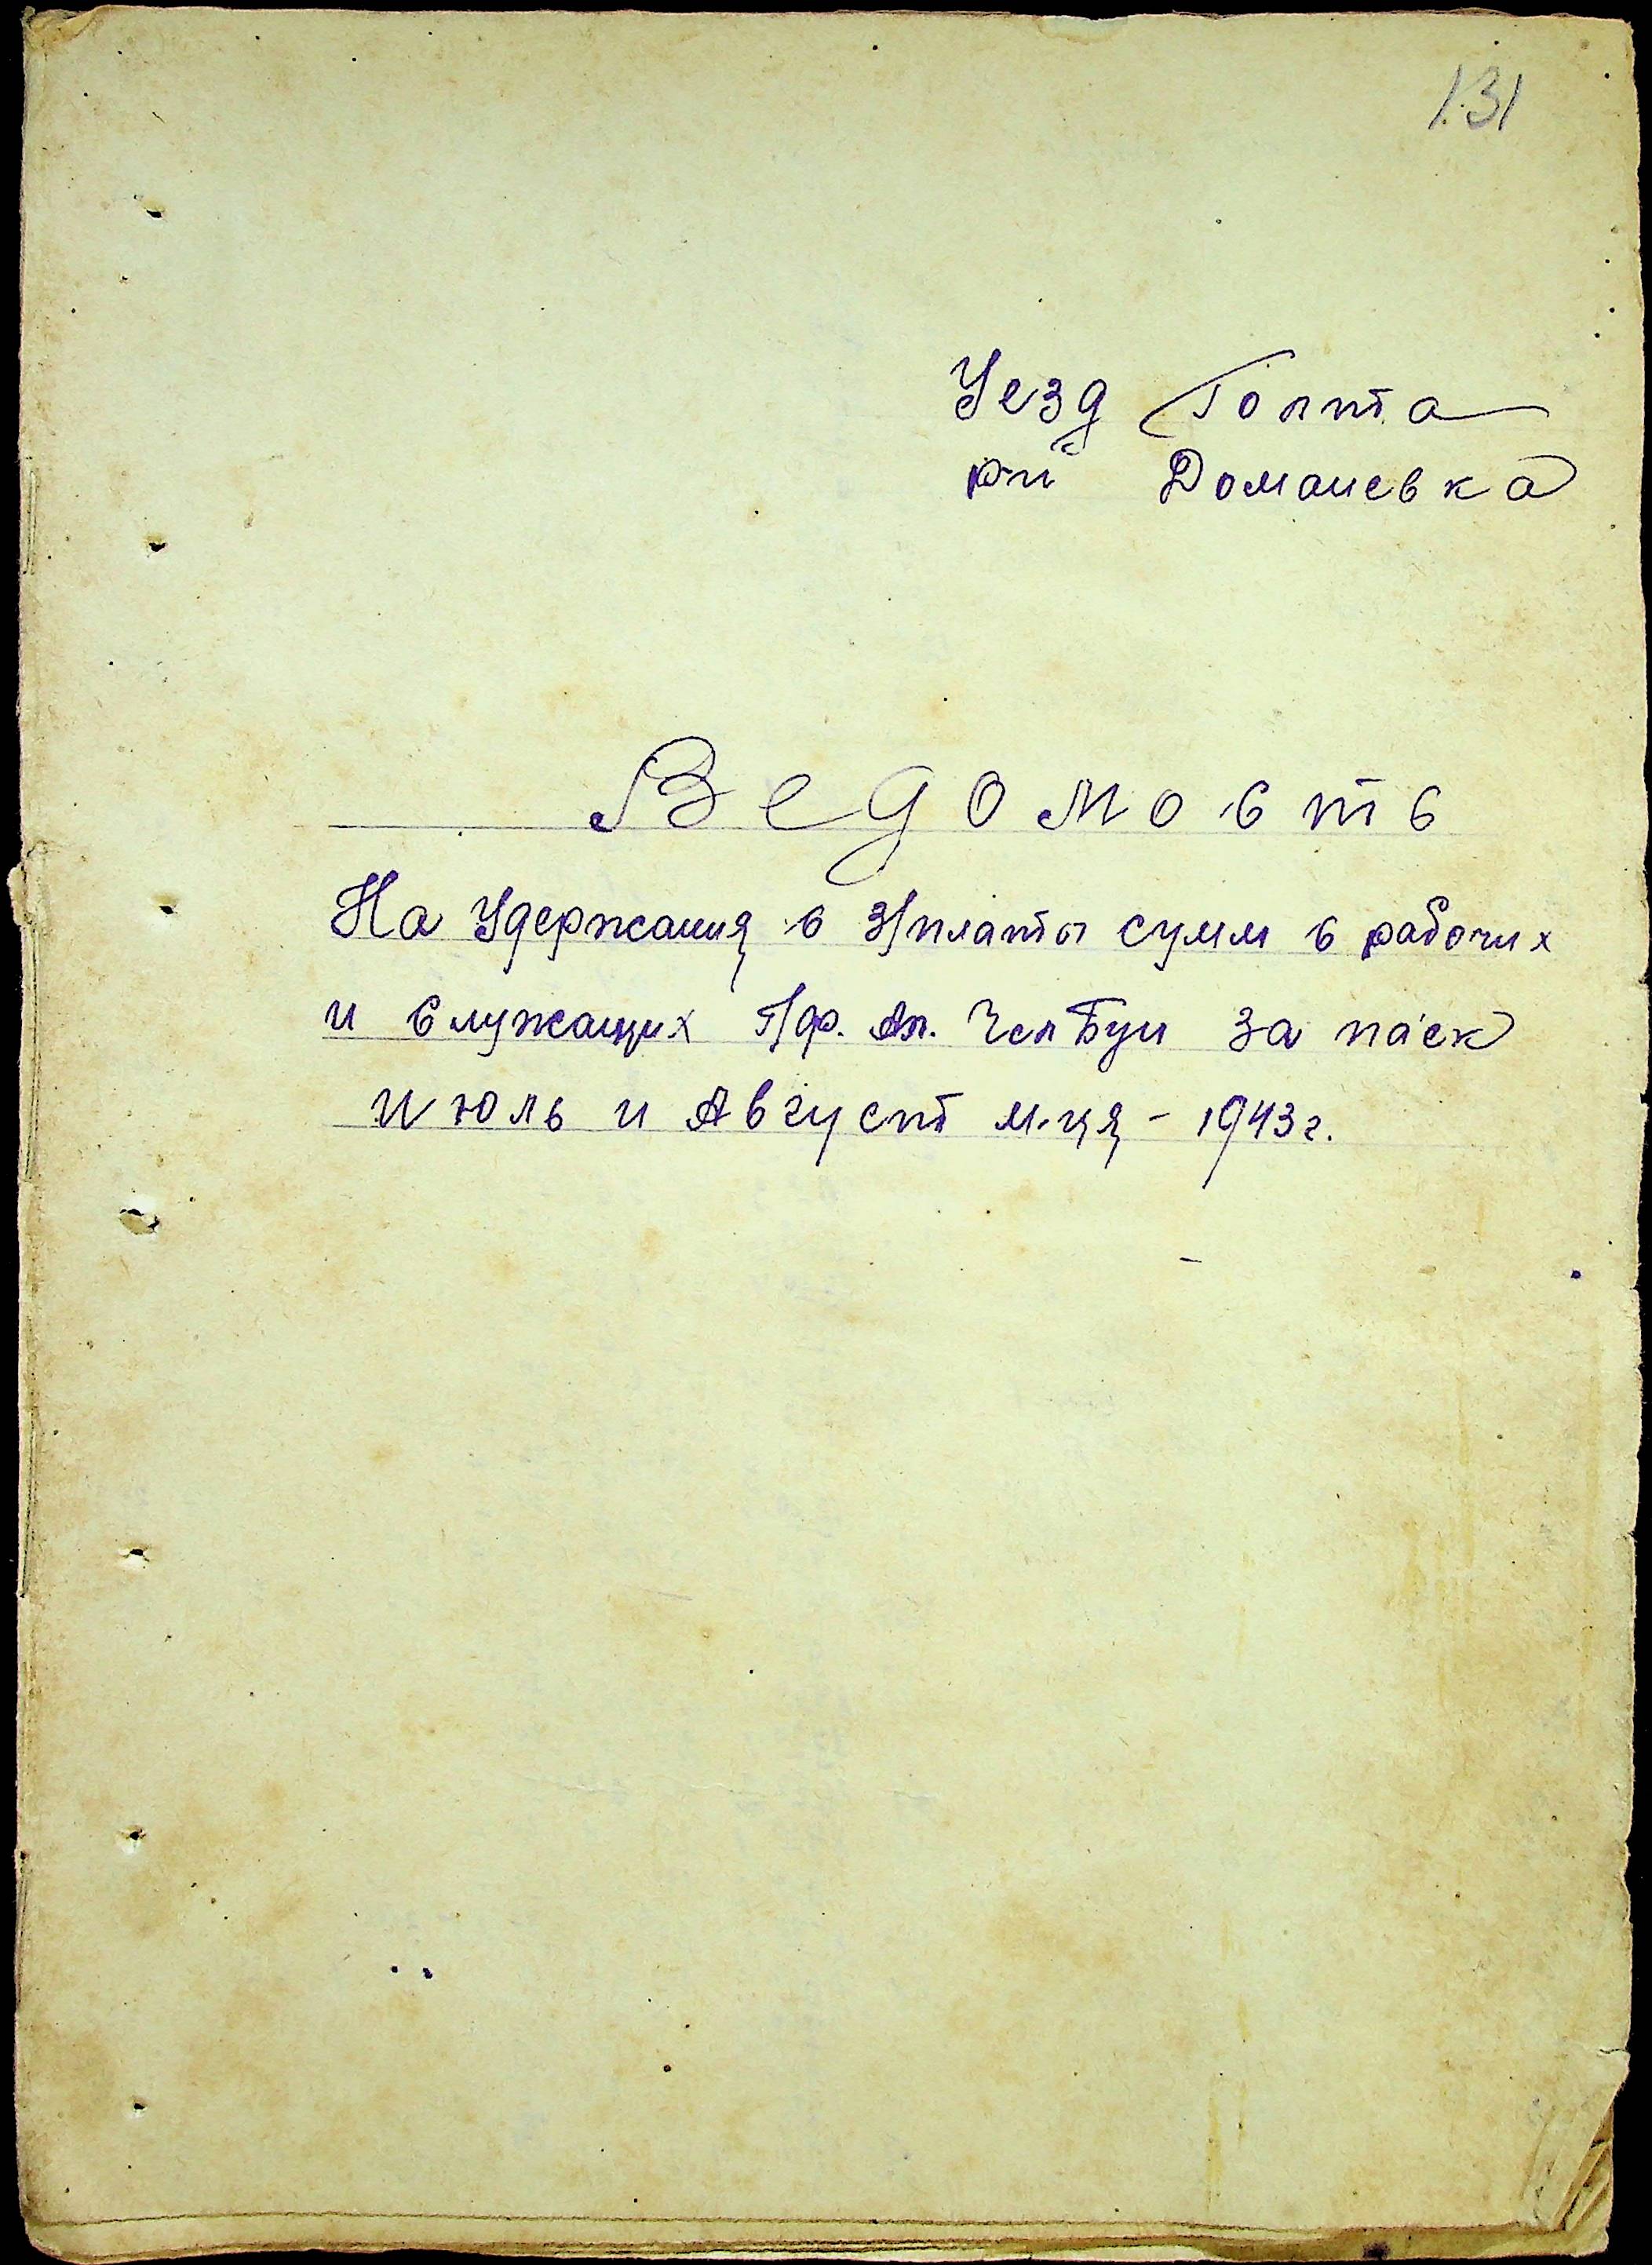 131
Уезд Голта
р-й Доманевка
Ведомость
На Удержания с З/платы сумм с рабочих
и Служащих П/ф. Ап. за паек
июль и Август м-ця - 1943 г.